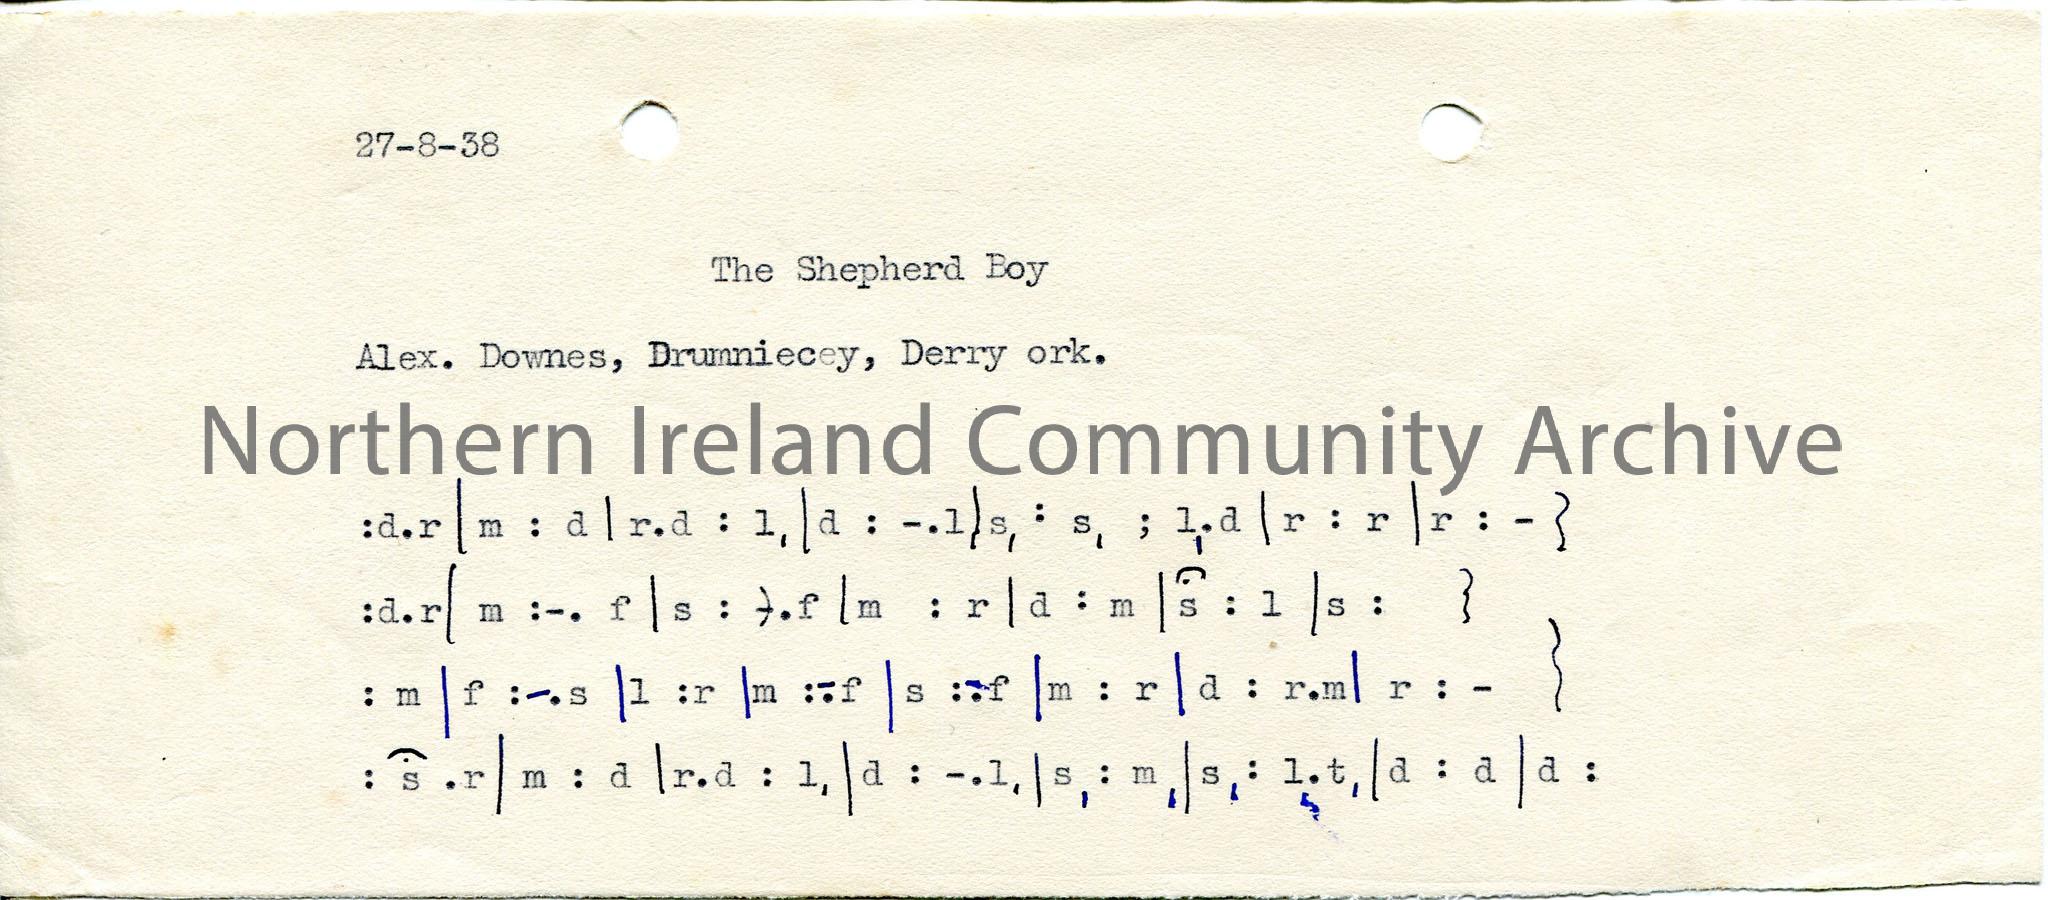 27-8-38
The Shepherd Boy
Alex. Downes, Drumniecey, Derry ork.
Northern Ireland Community Archive
:d.r| m : d | r.d : l,|d : -.l}s, : s, ; l,.d |r : r |r : - }
:d.r| m :-. f | s : }.f |m : r | d : m | s : l | s : }
: m | f :-.s |l :r |m :-.f | s :-.f |m : r | d : r.m| r : - }
: s .r| m : d |r.d : l,|d : -.l,|s, : m,|s, : l,.t,|d : d | d :